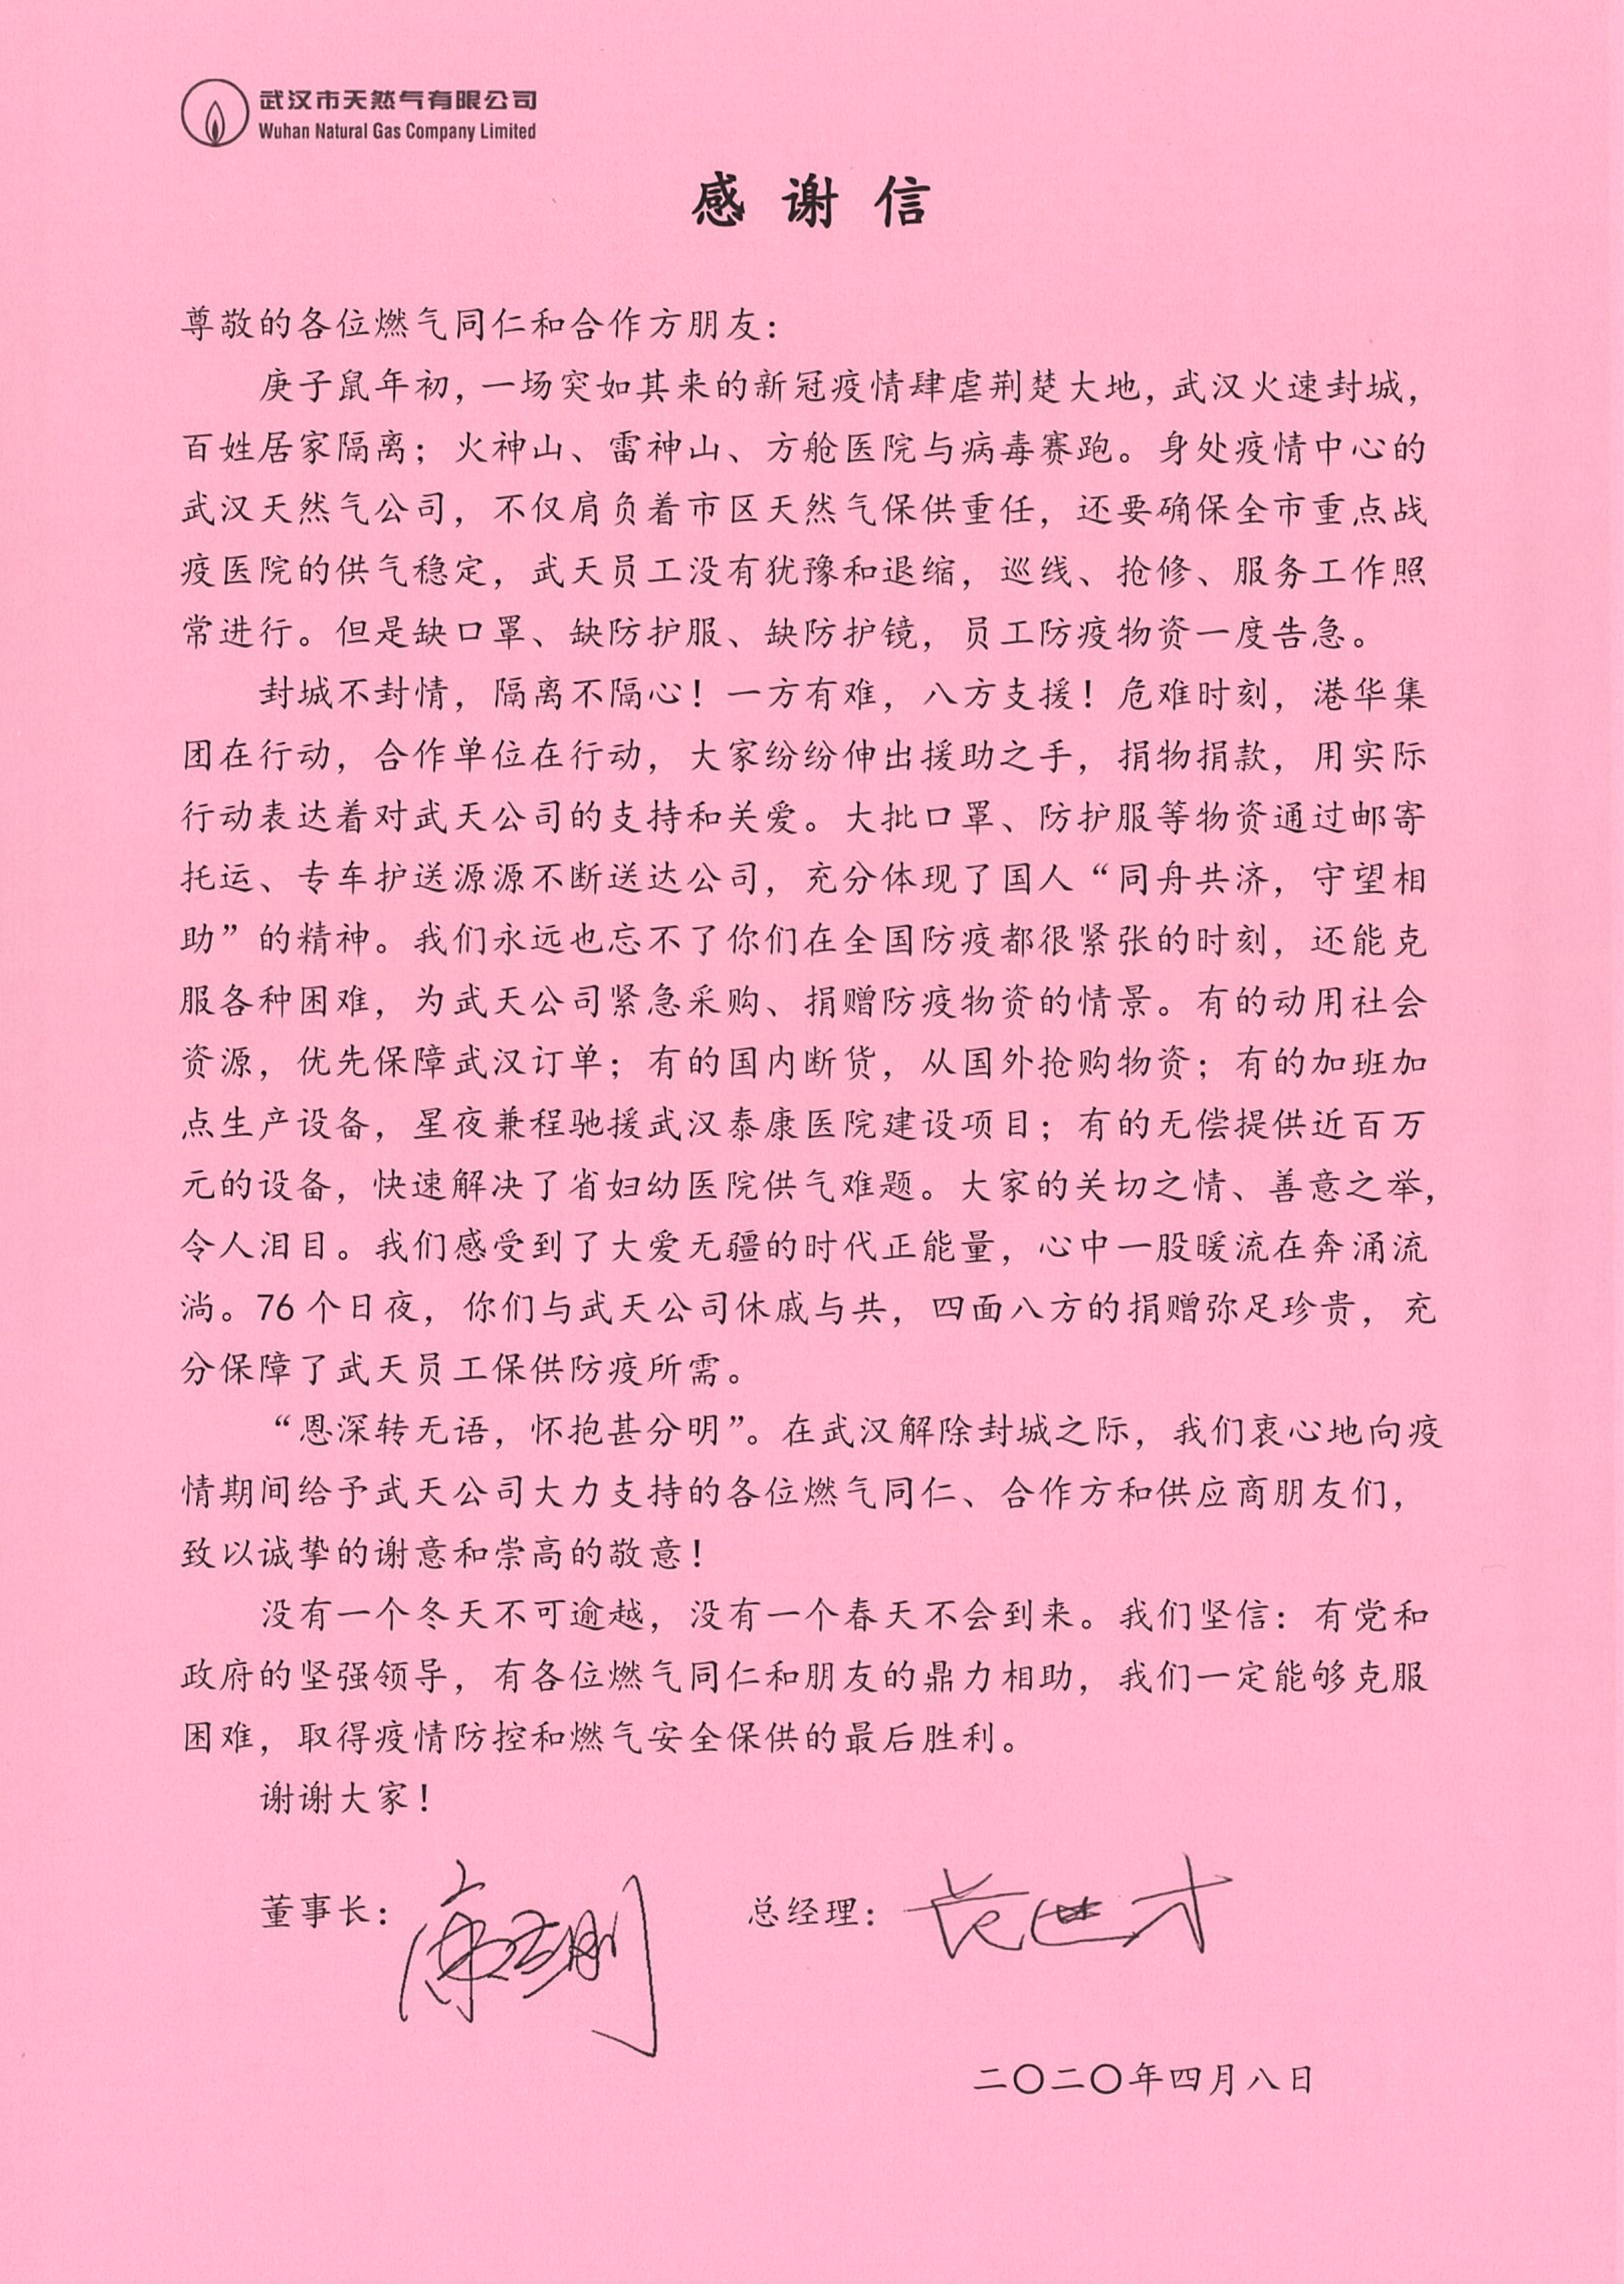 武汉市天然气有限公司
Wuhan Natural Gas Company Limited
感谢信
尊敬的各位燃气同仁和合作方朋友：
庚子鼠年初，一场突如其来的新冠疫情肆虐荆楚大地，武汉火速封城，
百姓居家隔离；火神山、雷神山、方舱医院与病毒赛跑。身处疫情中心的
武汉天然气公司，不仅肩负着市区天然气保供重任，还要确保全市重点战
疫医院的供气稳定，武天员工没有犹豫和退缩，巡线、抢修、服务工作照
常进行。但是缺口罩、缺防护服、缺防护镜，员工防疫物资一度告急。
封城不封情，隔离不隔心！一方有难，八方支援！危难时刻，港华集
团在行动，合作单位在行动，大家纷纷伸出援助之手，捐物捐款，用实际
行动表达着对武天公司的支持和关爱。大批口罩、防护服等物资通过邮寄
托运、专车护送源源不断送达公司，充分体现了国人“同舟共济，守望相
助”的精神。我们永远也忘不了你们在全国防疫都很紧张的时刻，还能克
服各种困难，为武天公司紧急采购、捐赠防疫物资的情景。有的动用社会
资源，优先保障武汉订单；有的国内断货，从国外抢购物资；有的加班加
点生产设备，星夜兼程驰援武汉泰康医院建设项目；有的无偿提供近百万
元的设备，快速解决了省妇幼医院供气难题。大家的关切之情、善意之举，
令人泪目。我们感受到了大爱无疆的时代正能量，心中一股暖流在奔涌流
淌。76个日夜，你们与武天公司休戚与共，四面八方的捐赠弥足珍贵，充
分保障了武天员工保供防疫所需。
“恩深转无语，怀抱甚分明”。在武汉解除封城之际，我们衷心地向疫
情期间给予武天公司大力支持的各位燃气同仁、合作方和供应商朋友们，
致以诚挚的谢意和崇高的敬意！
没有一个冬天不可逾越，没有一个春天不会到来。我们坚信：有党和
政府的坚强领导，有各位燃气同仁和朋友的鼎力相助，我们一定能够克服
困难，取得疫情防控和燃气安全保供的最后胜利。
谢谢大家！
董事长： 总经理：
二〇二〇年四月八日